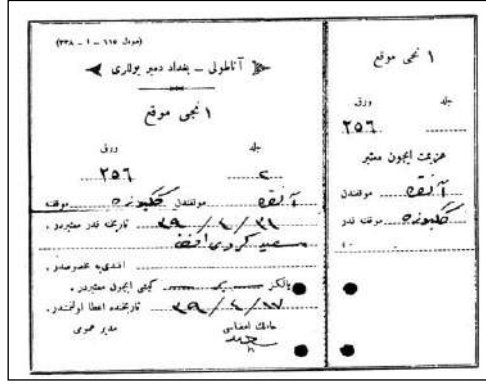 (مودل ١١٥ – ١ – ٣٣٨)
آناطولی – بغداد دمیر یوللری
١ نجی موقع
جلد ورق
٢ ٢٥٦
آنقره موقفندن گکبوزه موقفنه
٣١ / ٤ / ٣٩ تاریخنه قدر معتبردر .
سعید کردی افندی
افندی‌یه مخصوصدر .
یالکز یک کیشی ایچون معتبردر .
١٧ / ٤ / ٣٩ تاریخنده اعطا اولنمشدر .
مدیر عمومی
١ نجی موقع
جلد ورق
٢٥٦
عزیمت ایچون معتبر
آنقره موقفندن
گکبوزه موقفنه قدر